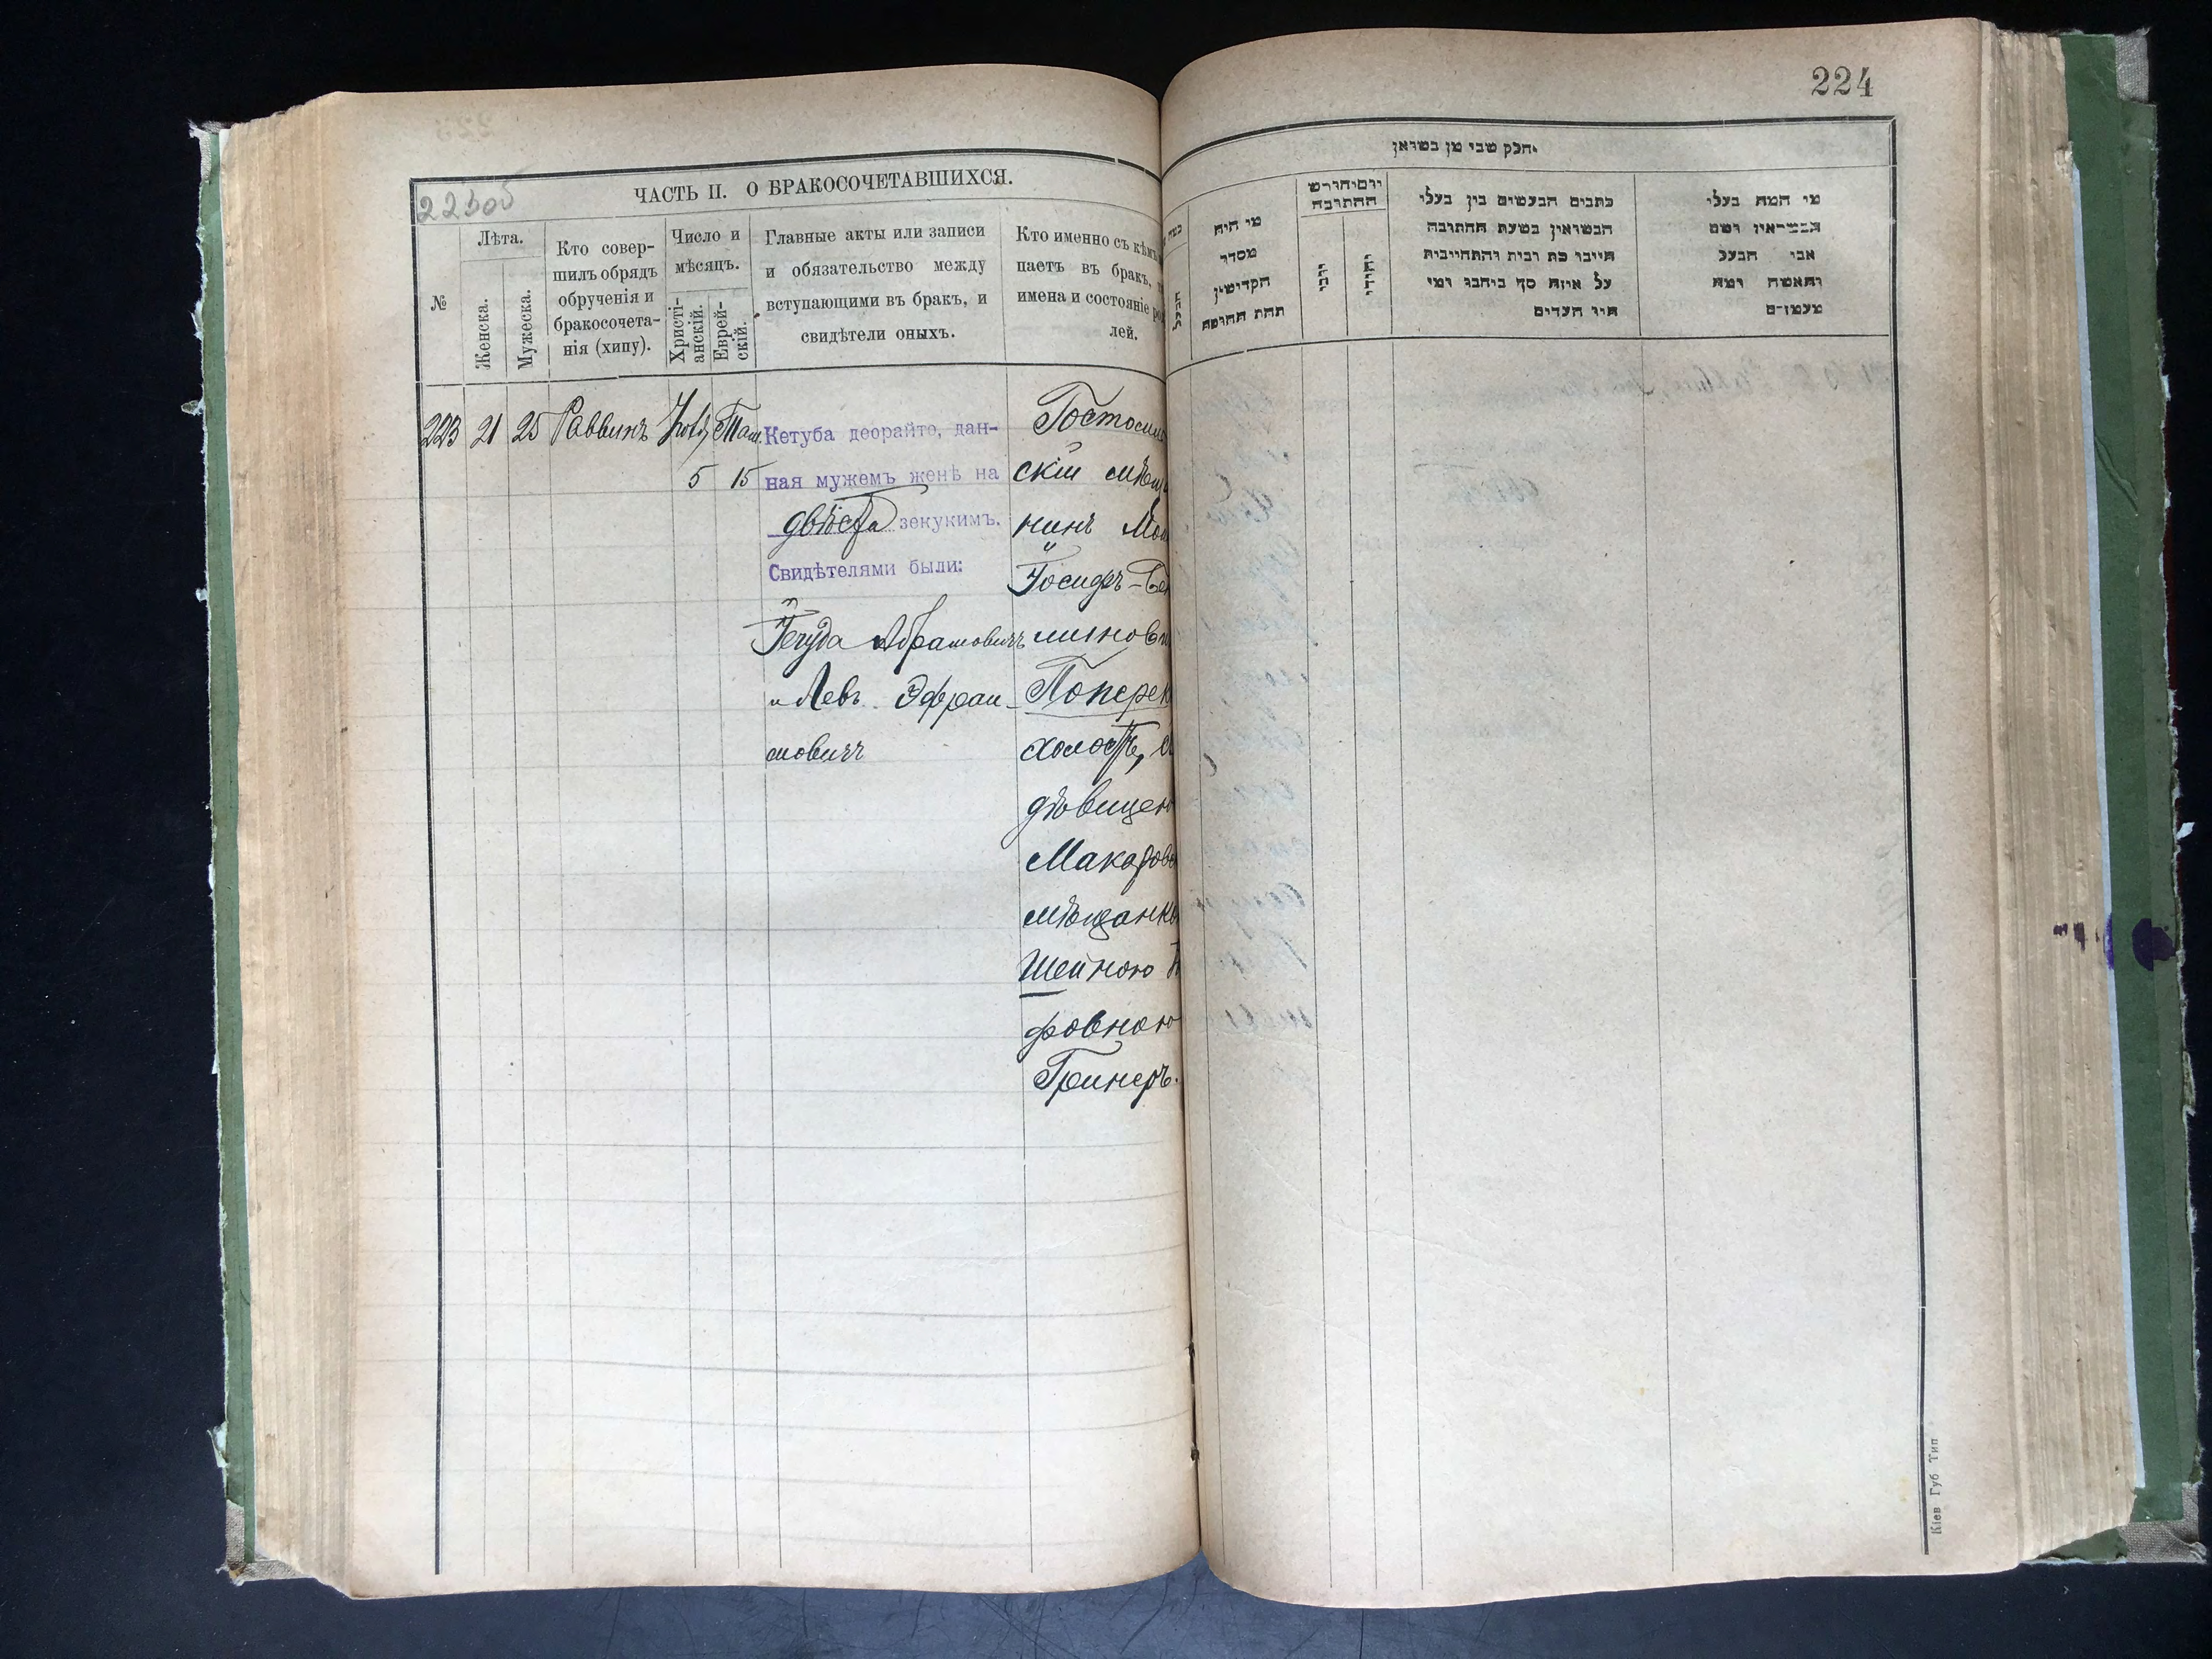 224
223об
ЧАСТЬ II. О БРАКОСОЧЕТАВШИХСЯ.
№
Лѣта.
Женска.
Мужеска.
Кто совер-
шилъ обрядъ
обрученія и
бракосочета-
нія (хипу).
Число и
мѣсяцъ.
Христі-
анскій.
Еврей-
скій.
Главные акты или записи
и обязательство между
вступающими въ бракъ, и
свидѣтели оныхъ.
Кто именно съ кѣмъ
паетъ въ бракъ,
имена и состояніе ро
лей.
223 21 25 Раввинъ Іюль Там.
5 15
Кетуба деорайто, дан-
ная мужемъ женѣ на
двѣста зекукимъ.
Свидѣтелями были:
Іегуда Абрамовичъ
и Левъ Эфраи-
мовичъ
скій мѣщ
нинъ Мо
Іосифъ-Бе
миновъ
Попере
холостъ, с
дѣвицею
Макарово
мѣщанко
Шейною
фовною
Гринеръ.
חלק שני מן נשואן
מי היה
מסדר
הקדושין
תחת החופה
יום וחודש
החתונה
יוני
יהודי
כתבים הנעשים בין בעלי
הנשואין בשעת החתונה
חייבו כת ובית והתחייבות
על איזה סך כיהבו ומי
היו העדים
מי המה בעלי
הנשואין ושם
אבי הבעל
והאשה ומה
מעמדם
Кіев Губ Тип